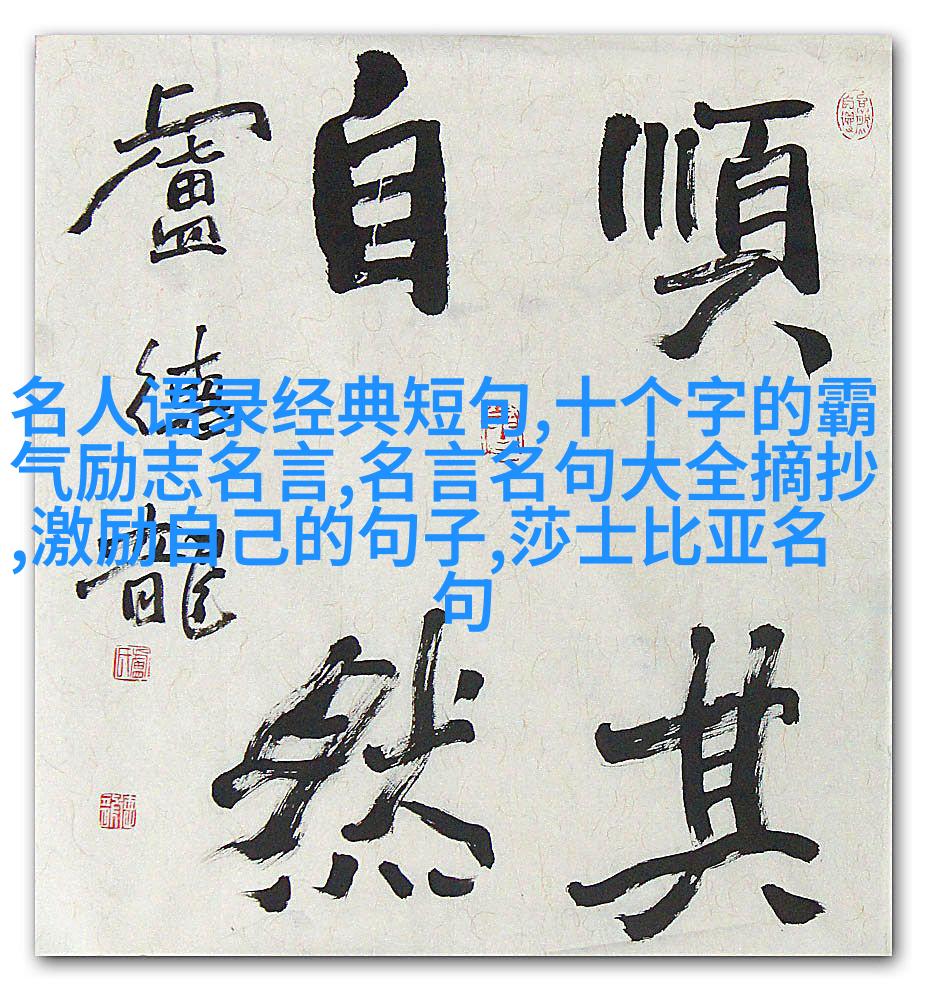 順其
自然
盧德龍
名人语录经典短句,十个字的霸
气励志名言,名言名句大全摘抄
,激励自己的句子,莎士比亚名
句